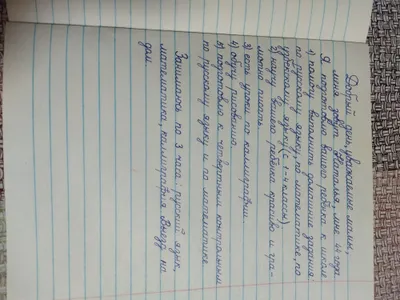 Добрый день, уважаемые мамы.
меня зовут Наталья, мне 44 года
Я подготовлю вашего ребёнка к школе
1) помогу выполнить домашние задания:
по русскому языку, по математике, по
узбекскому языку (с 1-4 классы)
2) научу вашего ребёнка красиво и гра-
мотно писать
3) есть уроки по каллиграфии.
4) обучу рисованию.
5) подготовлю к четвертным контрольным
по русскому языку и по математике
Занимаюсь по 3 часа: русский язык,
математика, каллиграфия Выезд на
дом